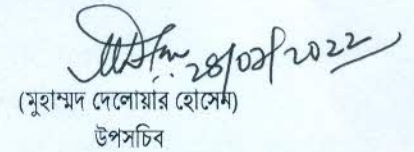 28/02/2022
(মুহাম্মদ দেলোয়ার হোসেন)
উপসচিব